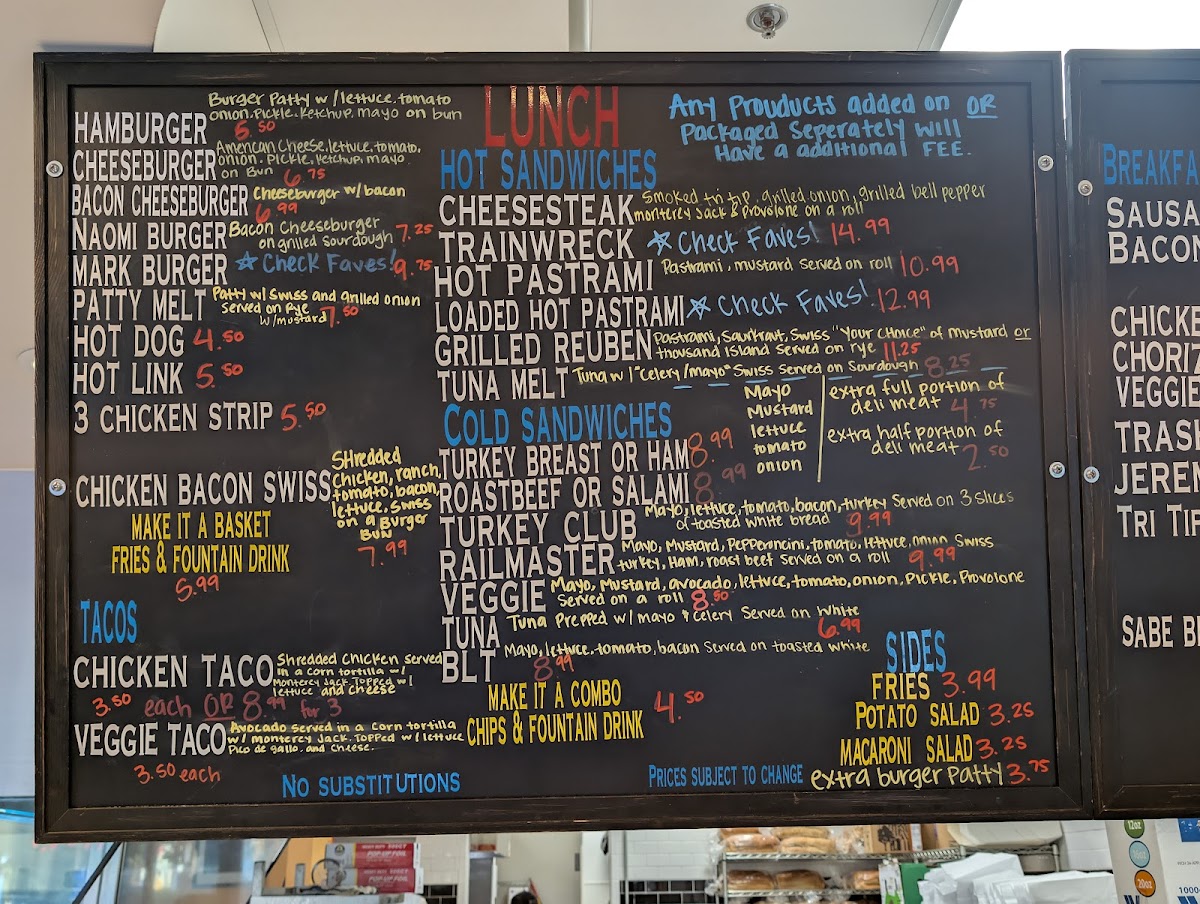 HAMBURGER Burger Patty w/lettuce, tomato
onion, Pickle, Ketchup, mayo on bun
5.50
CHEESEBURGER American Cheese, lettuce, tomato,
onion, Pickle, Ketchup, mayo.
on Bun 6.75
BACON CHEESEBURGER Cheeseburger w/bacon
6.99
NAOMI BURGER Bacon Cheeseburger
on grilled Sourdough 7.25
MARK BURGER ☆ Check Faves! 9.75
PATTY MELT Patty w/ Swiss and grilled onion
Served on Rye
w/mustard 7.50
HOT DOG 4.50
HOT LINK 5.50
3 CHICKEN STRIP 5.50
CHICKEN BACON SWISS SHredded
Chicken, ranch,
tomato, bacon,
lettuce, Swiss
on a Burger
BUN
7.99
MAKE IT A BASKET
FRIES & FOUNTAIN DRINK
5.99
TACOS
CHICKEN TACO Shredded Chicken served
in a corn tortilla w/
Monterey Jack. Topped w/
lettuce and cheese
3.50 each OR 8.99 for 3
VEGGIE TACO Avocado served in a corn tortilla
w/ monterey Jack. Topped w/ lettuce
Pico de gallo, and cheese.
3.50 each
NO SUBSTITUTIONS
LUNCH
Any Prouducts added on OR
Packaged Seperately Will
Have a additional FEE.
HOT SANDWICHES
CHEESESTEAK Smoked tri tip, grilled onion, grilled bell pepper
monterey Jack & Provolone on a roll
TRAINWRECK ☆ Check Faves! 14.99
HOT PASTRAMI Pastrami, mustard Served on roll 10.99
LOADED HOT PASTRAMI ☆ Check Faves! 12.99
GRILLED REUBEN Pastrami, Saurkraut, Swiss "Your CHoice" of mustard or
thousand Island Served on rye 11.25
TUNA MELT Tuna w/ "Celery/mayo" Swiss Served on Sourdough 8.25
COLD SANDWICHES
Mayo
Mustard
lettuce
tomato
onion
extra full portion of
deli meat 4.75
extra half portion of
deli meat 2.50
TURKEY BREAST OR HAM 8.99
ROASTBEEF OR SALAMI 8.99
TURKEY CLUB Mayo, lettuce, tomato, bacon, turkey Served on 3 slices
of toasted white bread 9.99
RAILMASTER Mayo, Mustard, PePPeroncini, tomato, lettuce, onion Swiss
turkey, Ham, roast beef Served on a roll 9.99
VEGGIE Mayo, Mustard, avocado, lettuce, tomato, onion, Pickle, Provolone
Served on a roll 8.50
TUNA Tuna Prepped w/ mayo & celery Served on White
6.99
BLT Mayo, lettuce, tomato, bacon Served on toasted white
8.99
MAKE IT A COMBO
CHIPS & FOUNTAIN DRINK 4.50
SIDES
FRIES 3.99
POTATO SALAD 3.25
MACARONI SALAD 3.25
extra burger Patty 3.75
PRICES SUBJECT TO CHANGE
BREAKFA
SAUSA
BACON
CHICKE
CHORIZ
VEGGIE
TRASH
JEREM
TRI TIP
SABE B
POP-UP FOIL
POP-UP FOIL
12oz
20oz
1000